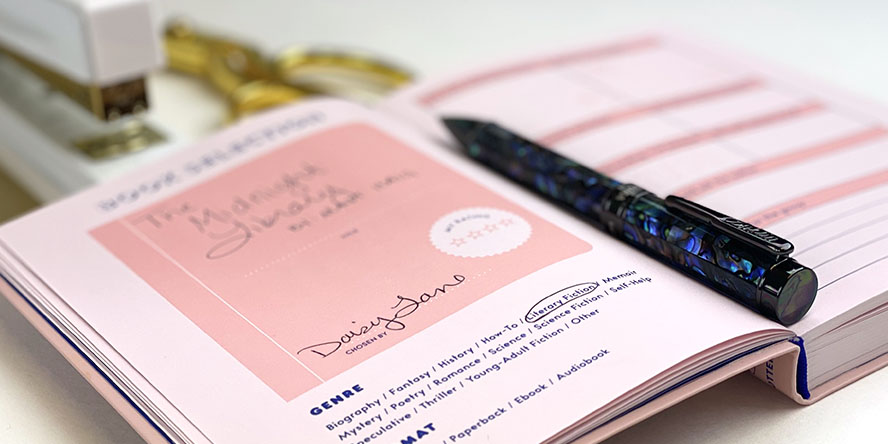 BOOK SELECTION
The
Midnight
Library
BY MATT HAIG
MY RATING
Daisy Jane
CHOSEN BY
GENRE
Biography / Fantasy / History / How-To / Literary Fiction / Memoir
Mystery / Poetry / Romance / Science / Science Fiction / Self-Help
Speculative / Thriller / Young-Adult Fiction / Other
MAT
/ Paperback / Ebook / Audiobook